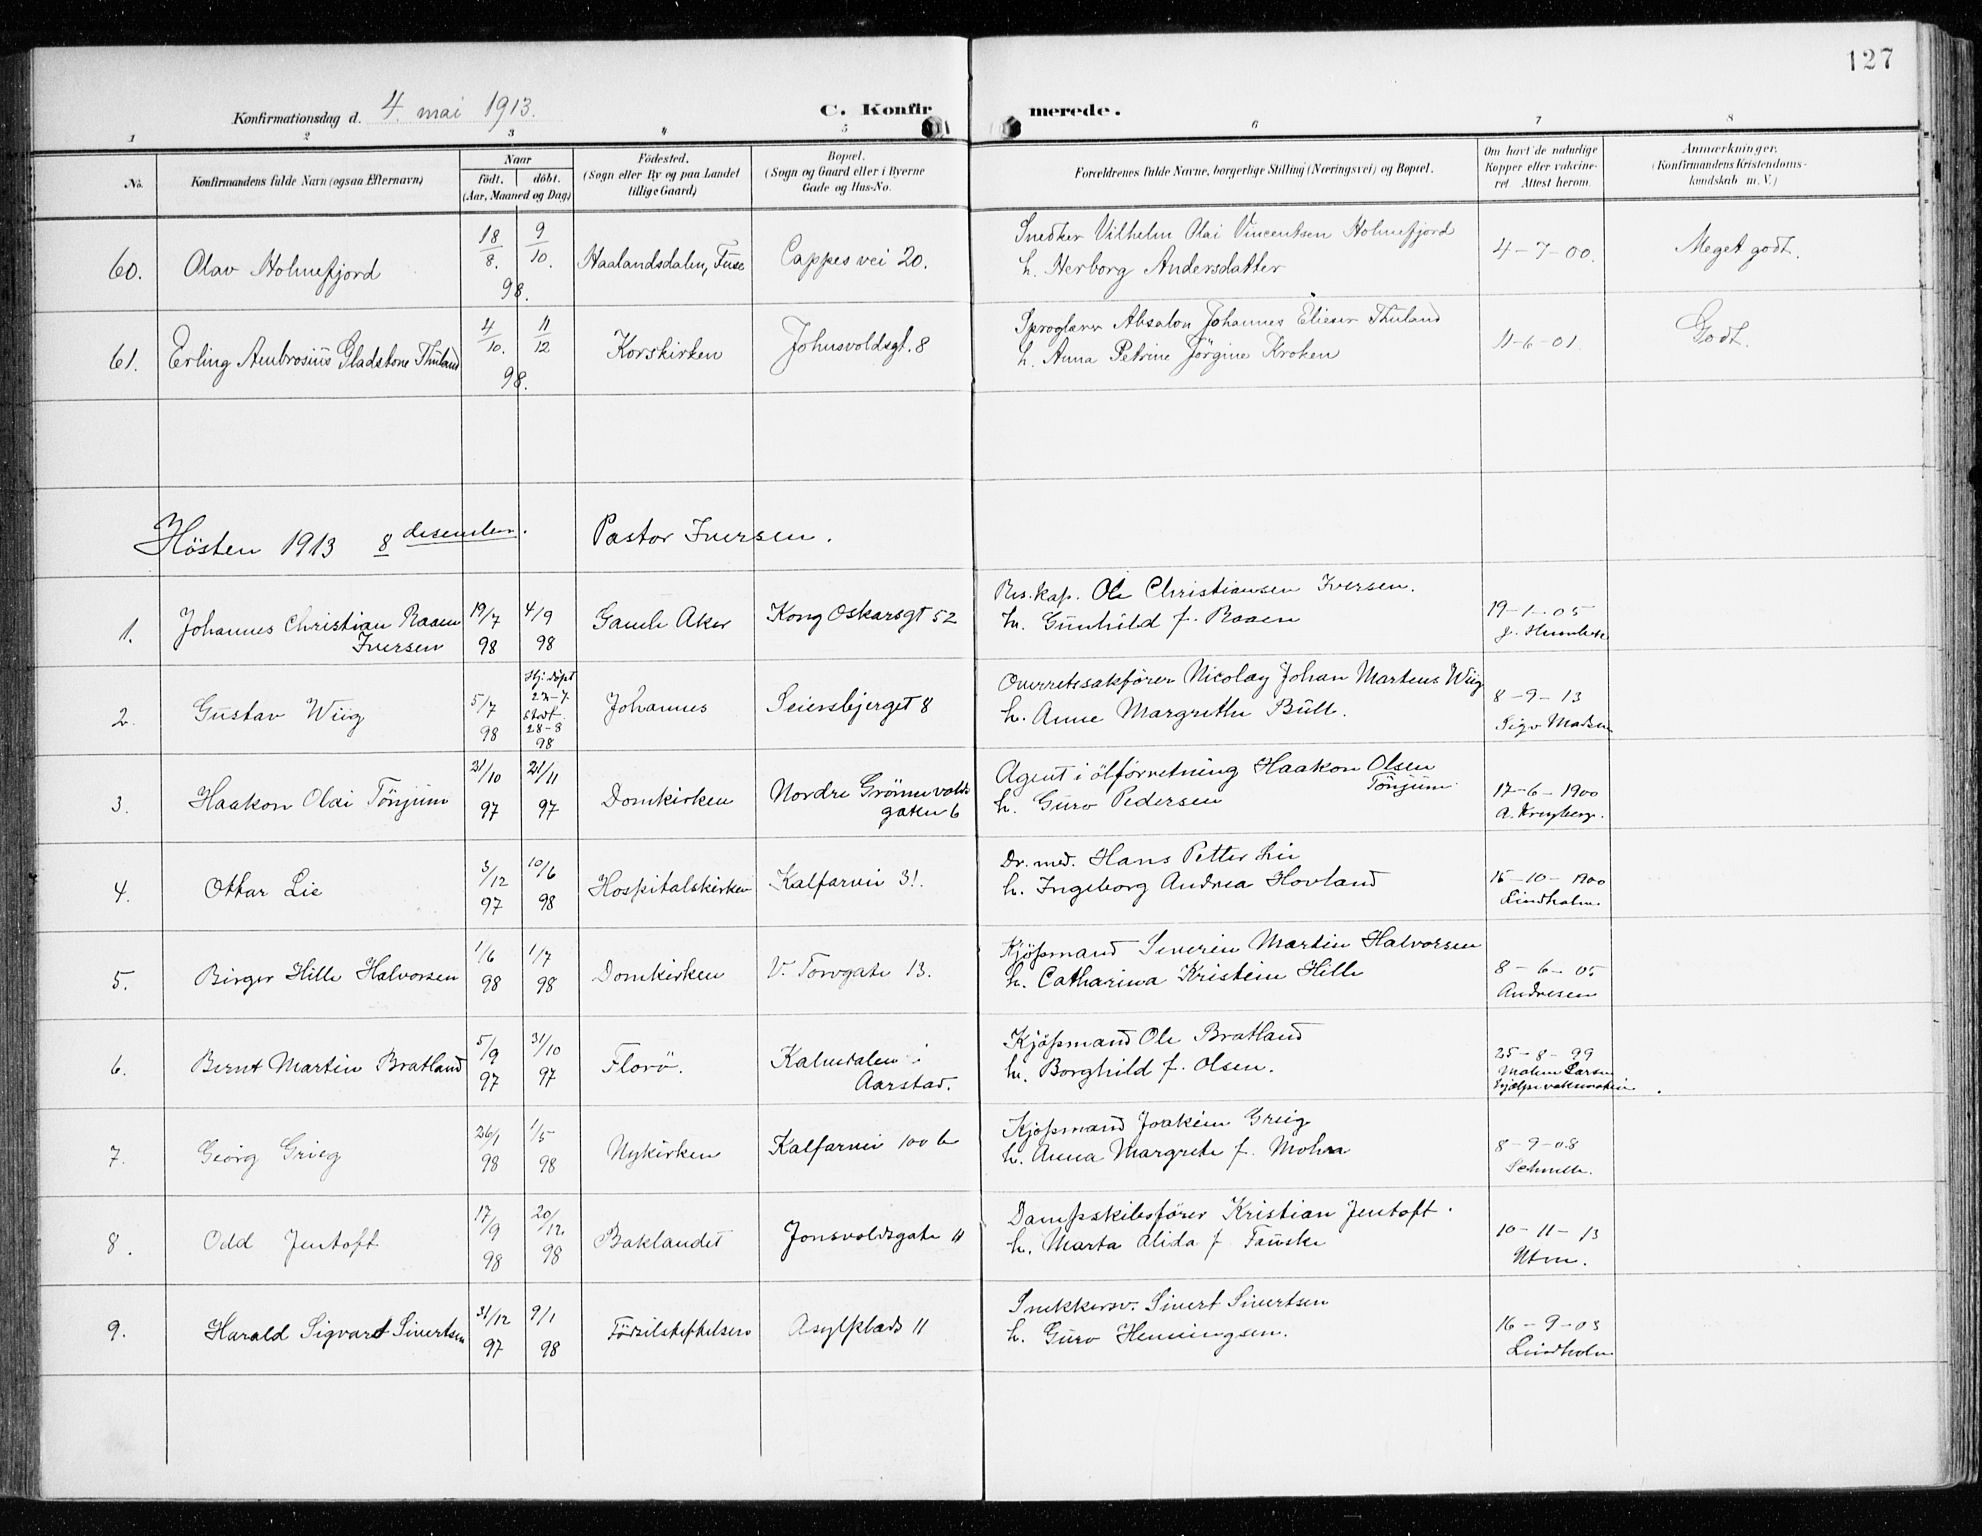 127
Konfirmationsdag d. 4. mai 1913.
C. Konfirmerede.
1 2 3 4 5 6 7 8
No.
Konfirmandens fulde Navn (ogsaa Efternavn)
Naar
født. døbt.
(Aar, Maaned og Dag)
Fødested.
(Sogn eller By og paa Landet
tillige Gaard)
Bopæl.
(Sogn og Gaard eller i Byerne
Gade og Hus-No.
Forældrenes fulde Navne, borgerlige Stilling (Næringsvei) og Bopæl.
Om havt de naturlige
Kopper eller vakcine-
ret Attest herom.
Anmærkninger.
(Konfirmandens Kristendoms-
kundskab m. V.)
60. Olav Holmefjord 18/8. 9/10. 98. Haalandsdalen, Fuse Cappes vei 20. Snedker Vilhelm Olai Vincentsen Holmefjord
h. Herborg Andersdatter 4-7-00. Meget godt.
61. Erling Ambrosius Gladstone Thuland 4/10. 11/12 98. Korskirken Johnsvoldsgt. 8 Sproglærer Absalon Johannes Elieser Thuland
h. Anna Petrine Jörgine Kroken 11-6-01. Godt.
Hösten 1913 8 desember. Pastor Iversen.
1. Johannes Christian Raaen
Iversen 19/7 98 4/9 98 Gamle Aker Kong Oskarsgt 52 Res. kap. Ole Christiansen Iversen.
h. Gunhild f. Raaen 19-1-05
2. Gustav Wiig 5/7 98 Hj. döpt
23-7
stadf.
28-8
98 Johannes Seiersbjerget 8 Overretssakförer Nicolay Johan Martens Wiig
h. Anne Margrethe Büll. 8-9-13
Sigv Madsen
3. Haakon Olai Tönjum 31/10 97 21/11 97 Domkirken Nordre Grönnevolds
gaten 6 Agent i ölforretning Haakon Olsen
Tönjum
h. Guro Pedersen 17-6-1900
4. Ottar Lie 3/12 97 10/6 98 Hospitalskirken Kalfarvei 31. Dr. med. Hans Petter Lie
h. Ingeborg Andrea Hovland 15-10-1900
Lindholm.
5. Birger Hille Halvorsen 1/6 98 1/7 98 Domkirken V. Torvgate 13. Kjöpmand Severin Martin Halvorsen
h. Catharina Kristine Hille 8-6-05
Andresen
6. Bernt Martin Bratland 5/9 97 31/10 97 Florö. Kalvedalen i
Aarstad. Kjöpmand Ole Bratland
h. Borghild f. Olsen. 25-8-99
Larsen
7. Georg Grieg 26/1 98 1/5 98 Nykirken Kalfarvei 100 b Kjöpmand Joakim Grieg
h. Anna Margrete f. Mohr 8-9-08
8. Odd Jentoft 17/9 98 20/12. 98 Baklandet Jonsvoldsgate 11 Dampskibsförer Kristian Jentoft.
h. Marta Alida f. Fauske 10-11-13
Utne.
9. Harald Sigvard Sivertsen 31/12 97 9/1 98 Födselsstiftelsen Asylplads 11 Snekkersv. Sivert Sivertsen
h. Guro Henningsen. 16-9-03
Lindholm